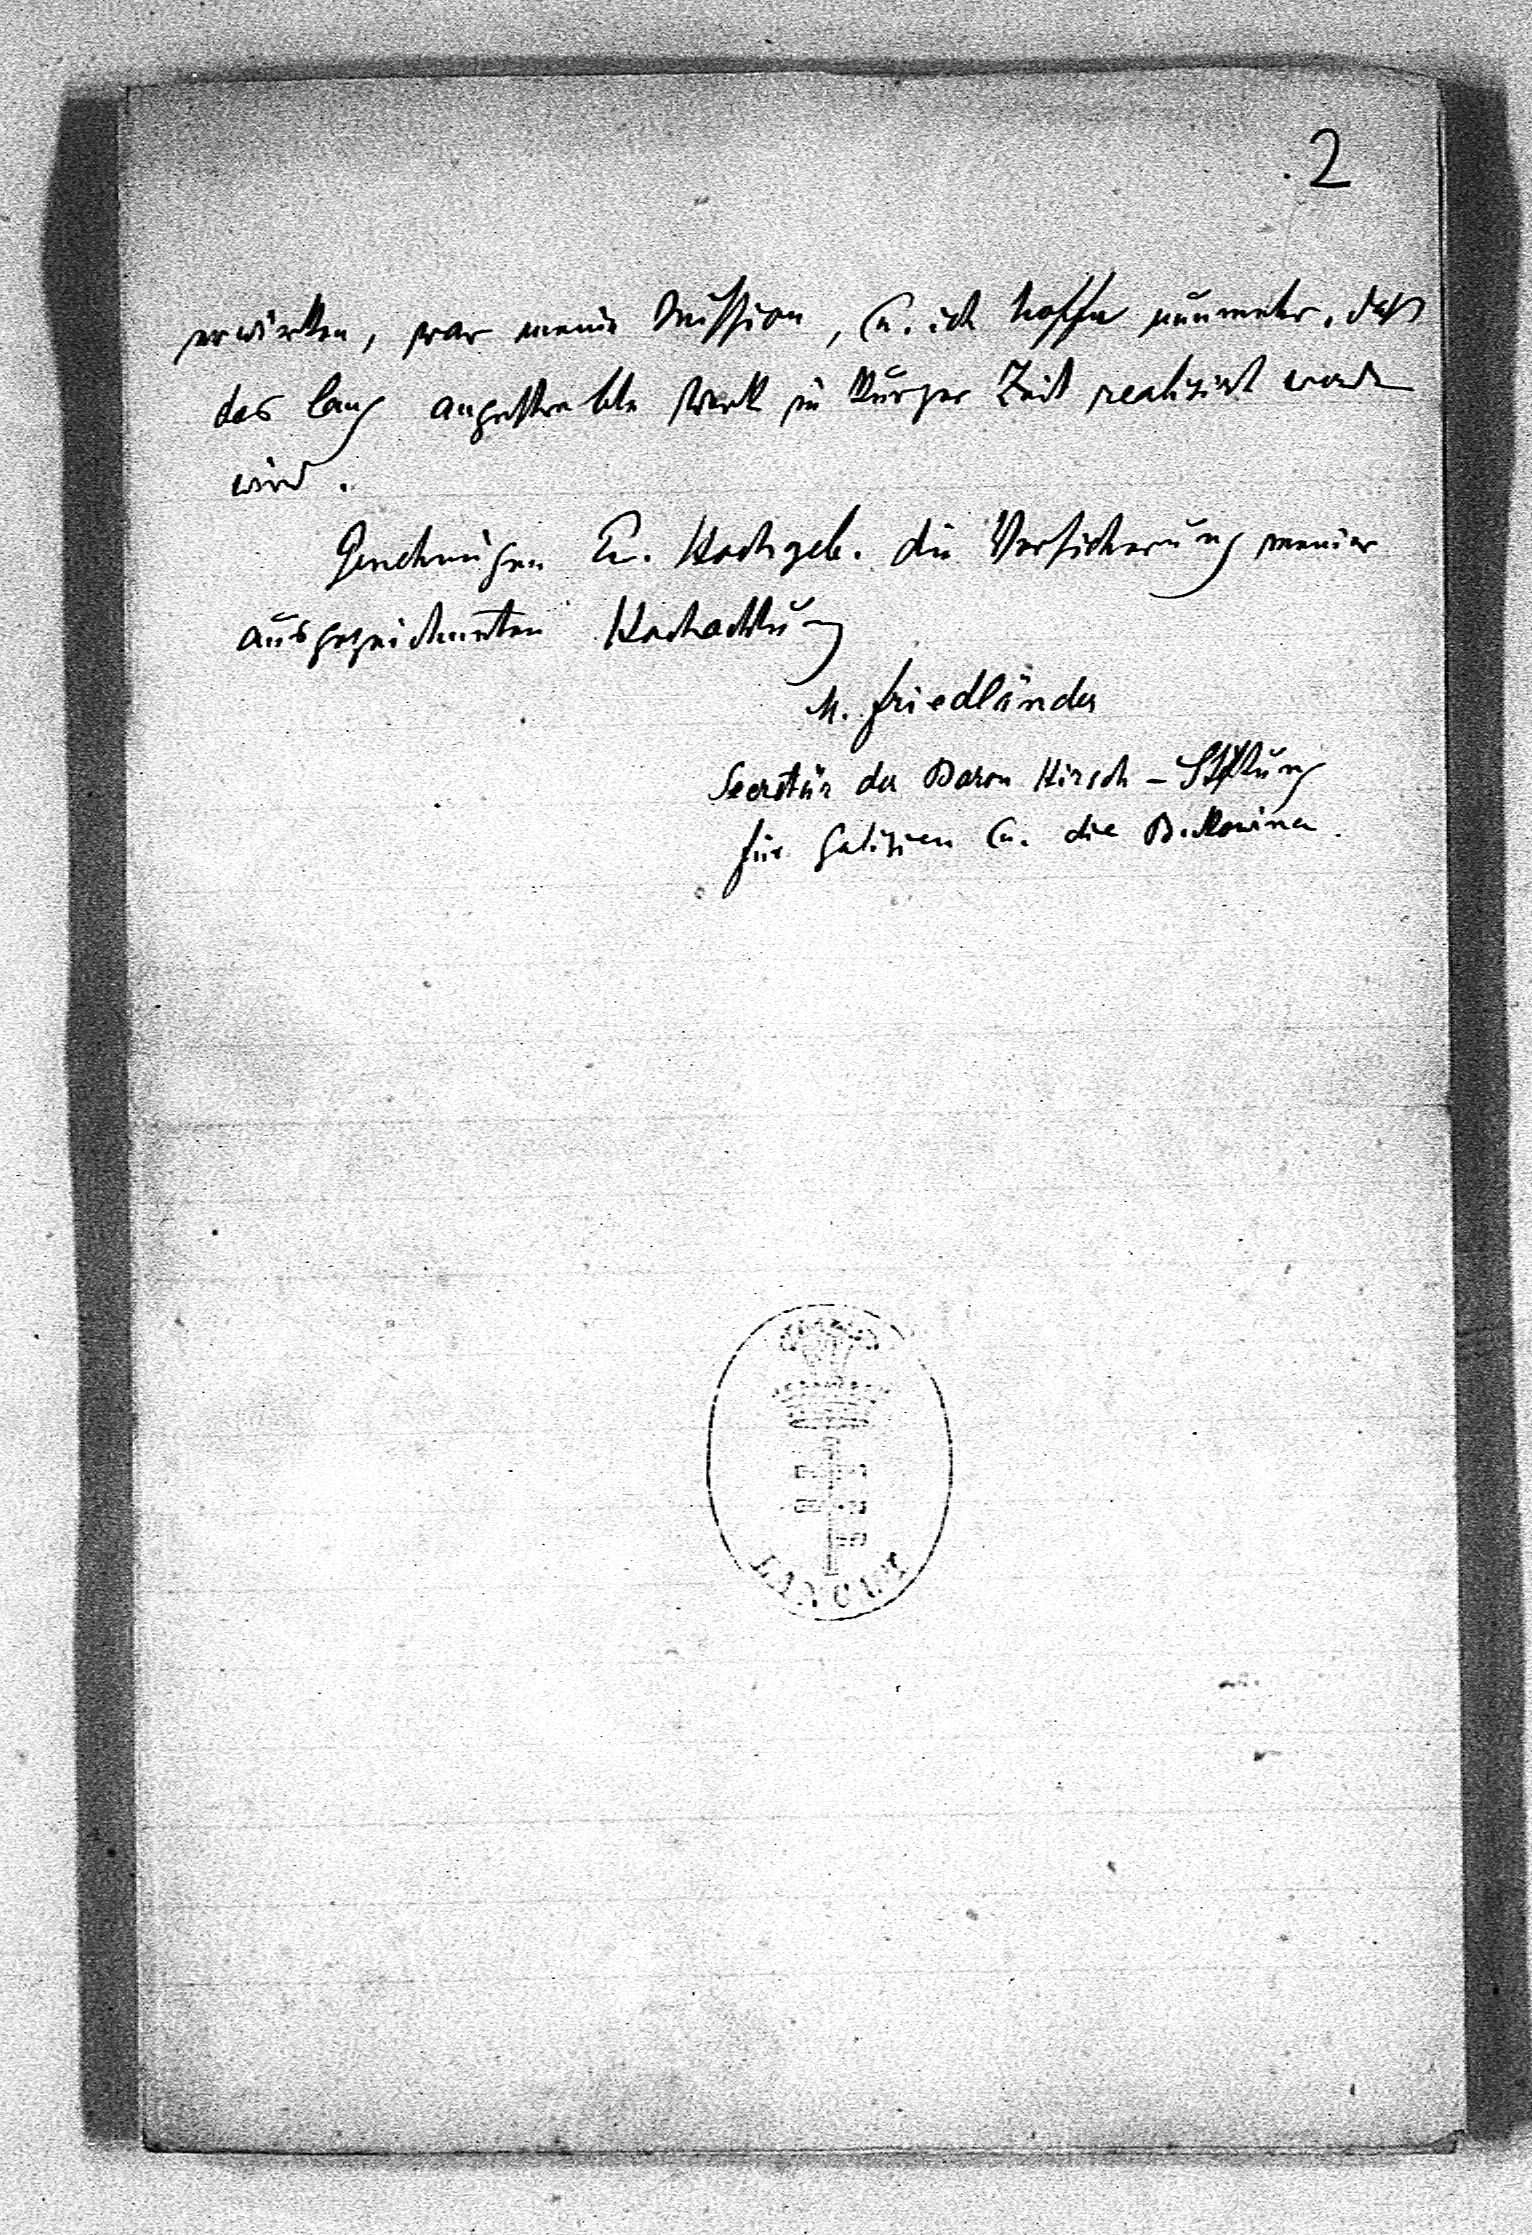 2
erwirken, war meine Mission, u. ich hoffe nunmehr, daß
das lang angestrebte Werk in kurzer Zeit realisirt werden
wird.
Genehmigen Ew. Hochgeb. die Versicherung meiner
ausgezeichneten Hochachtung
M. Friedländer
Secretär der Baron Hirsch-Stiftung
für Galizien u. die Bukowina.
ŁAŃCUT